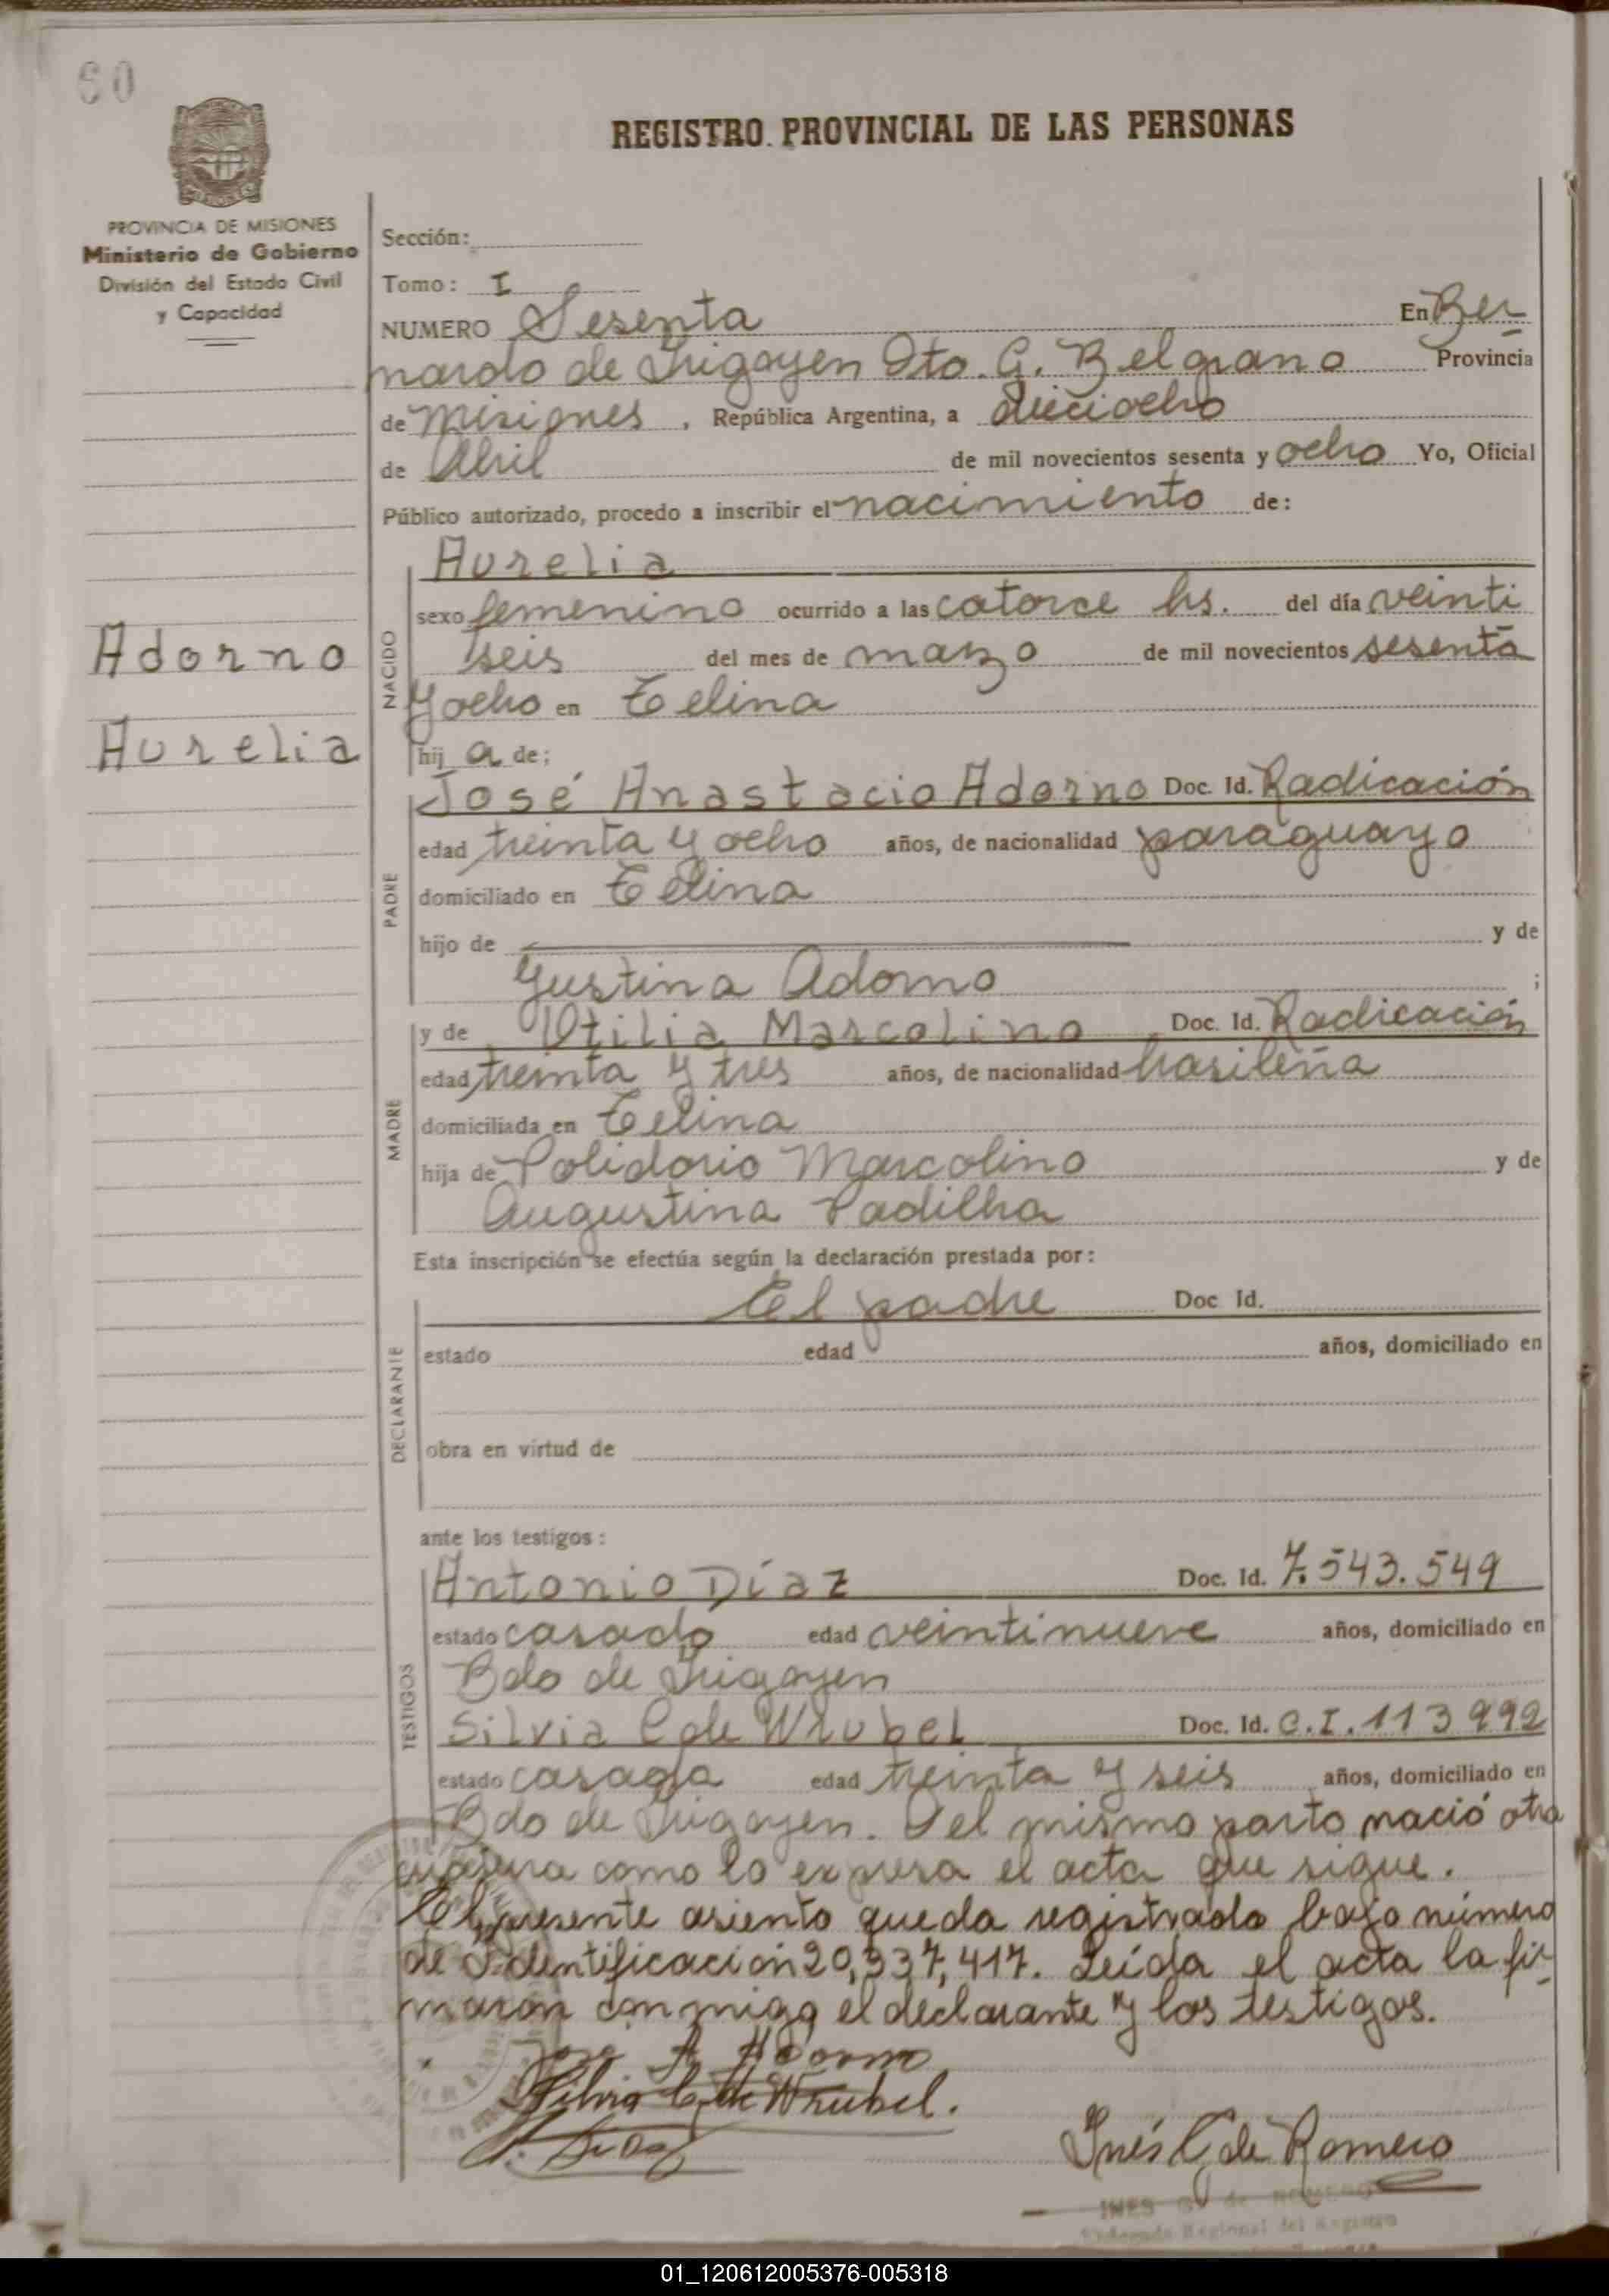 60
REGISTRO PROVINCIAL DE LAS PERSONAS
PROVINCIA DE MISIONES
Ministerio de Gobierno
División del Estado Civil
y Capacidad
Sección:
Tomo: I
NUMERO Sesenta En Ber
nardo de Irigoyen Dto. G. Belgrano Provincia
de Misiones, República Argentina, a dieciocho
de Abril de mil novecientos sesenta y ocho Yo, Oficial
Público autorizado, procedo a inscribir el nacimiento de:
Adorno
Aurelia
NACIDO
Aurelia
sexo femenino ocurrido a las catorce hs. del día veinti
seis del mes de marzo de mil novecientos sesenta
y ocho en Celina
hij a de;
PADRE
José Anastacio Adorno Doc. Id. Radicación
edad treinta y ocho años, de nacionalidad paraguayo
domiciliado en Celina
hijo de y de
Justina Adorno ;
MADRE
y de Otilia Marcolino Doc. Id. Radicación
edad treinta y tres años, de nacionalidad brasileña
domiciliada en Celina
hija de Polidorio Marcolino y de
Augustina Padilha
Esta inscripción se efectúa según la declaración prestada por:
DECLARANTE
El padre Doc Id.
estado edad años, domiciliado en
obra en virtud de
ante los testigos:
TESTIGOS
Antonio Díaz Doc. Id. 7.543.549
estado casado edad veintinueve años, domiciliado en
Bdo de Irigoyen
Silvia C de Wrubel Doc. Id. C.I. 113992
estado casada edad treinta y seis años, domiciliado en
Bdo de Irigoyen. Del mismo parto nació otra
criatura como lo expresa el acta que sigue.
El presente asiento queda registrado bajo número
de Identificación 20,337,417. Leída el acta la fir
maron conmigo el declarante y los testigos.
Jose A Adorno
Silvia C. de Wrubel.
A. Diaz
Inés G de Romero
INES G. de ROMERO
01_120612005376-005318